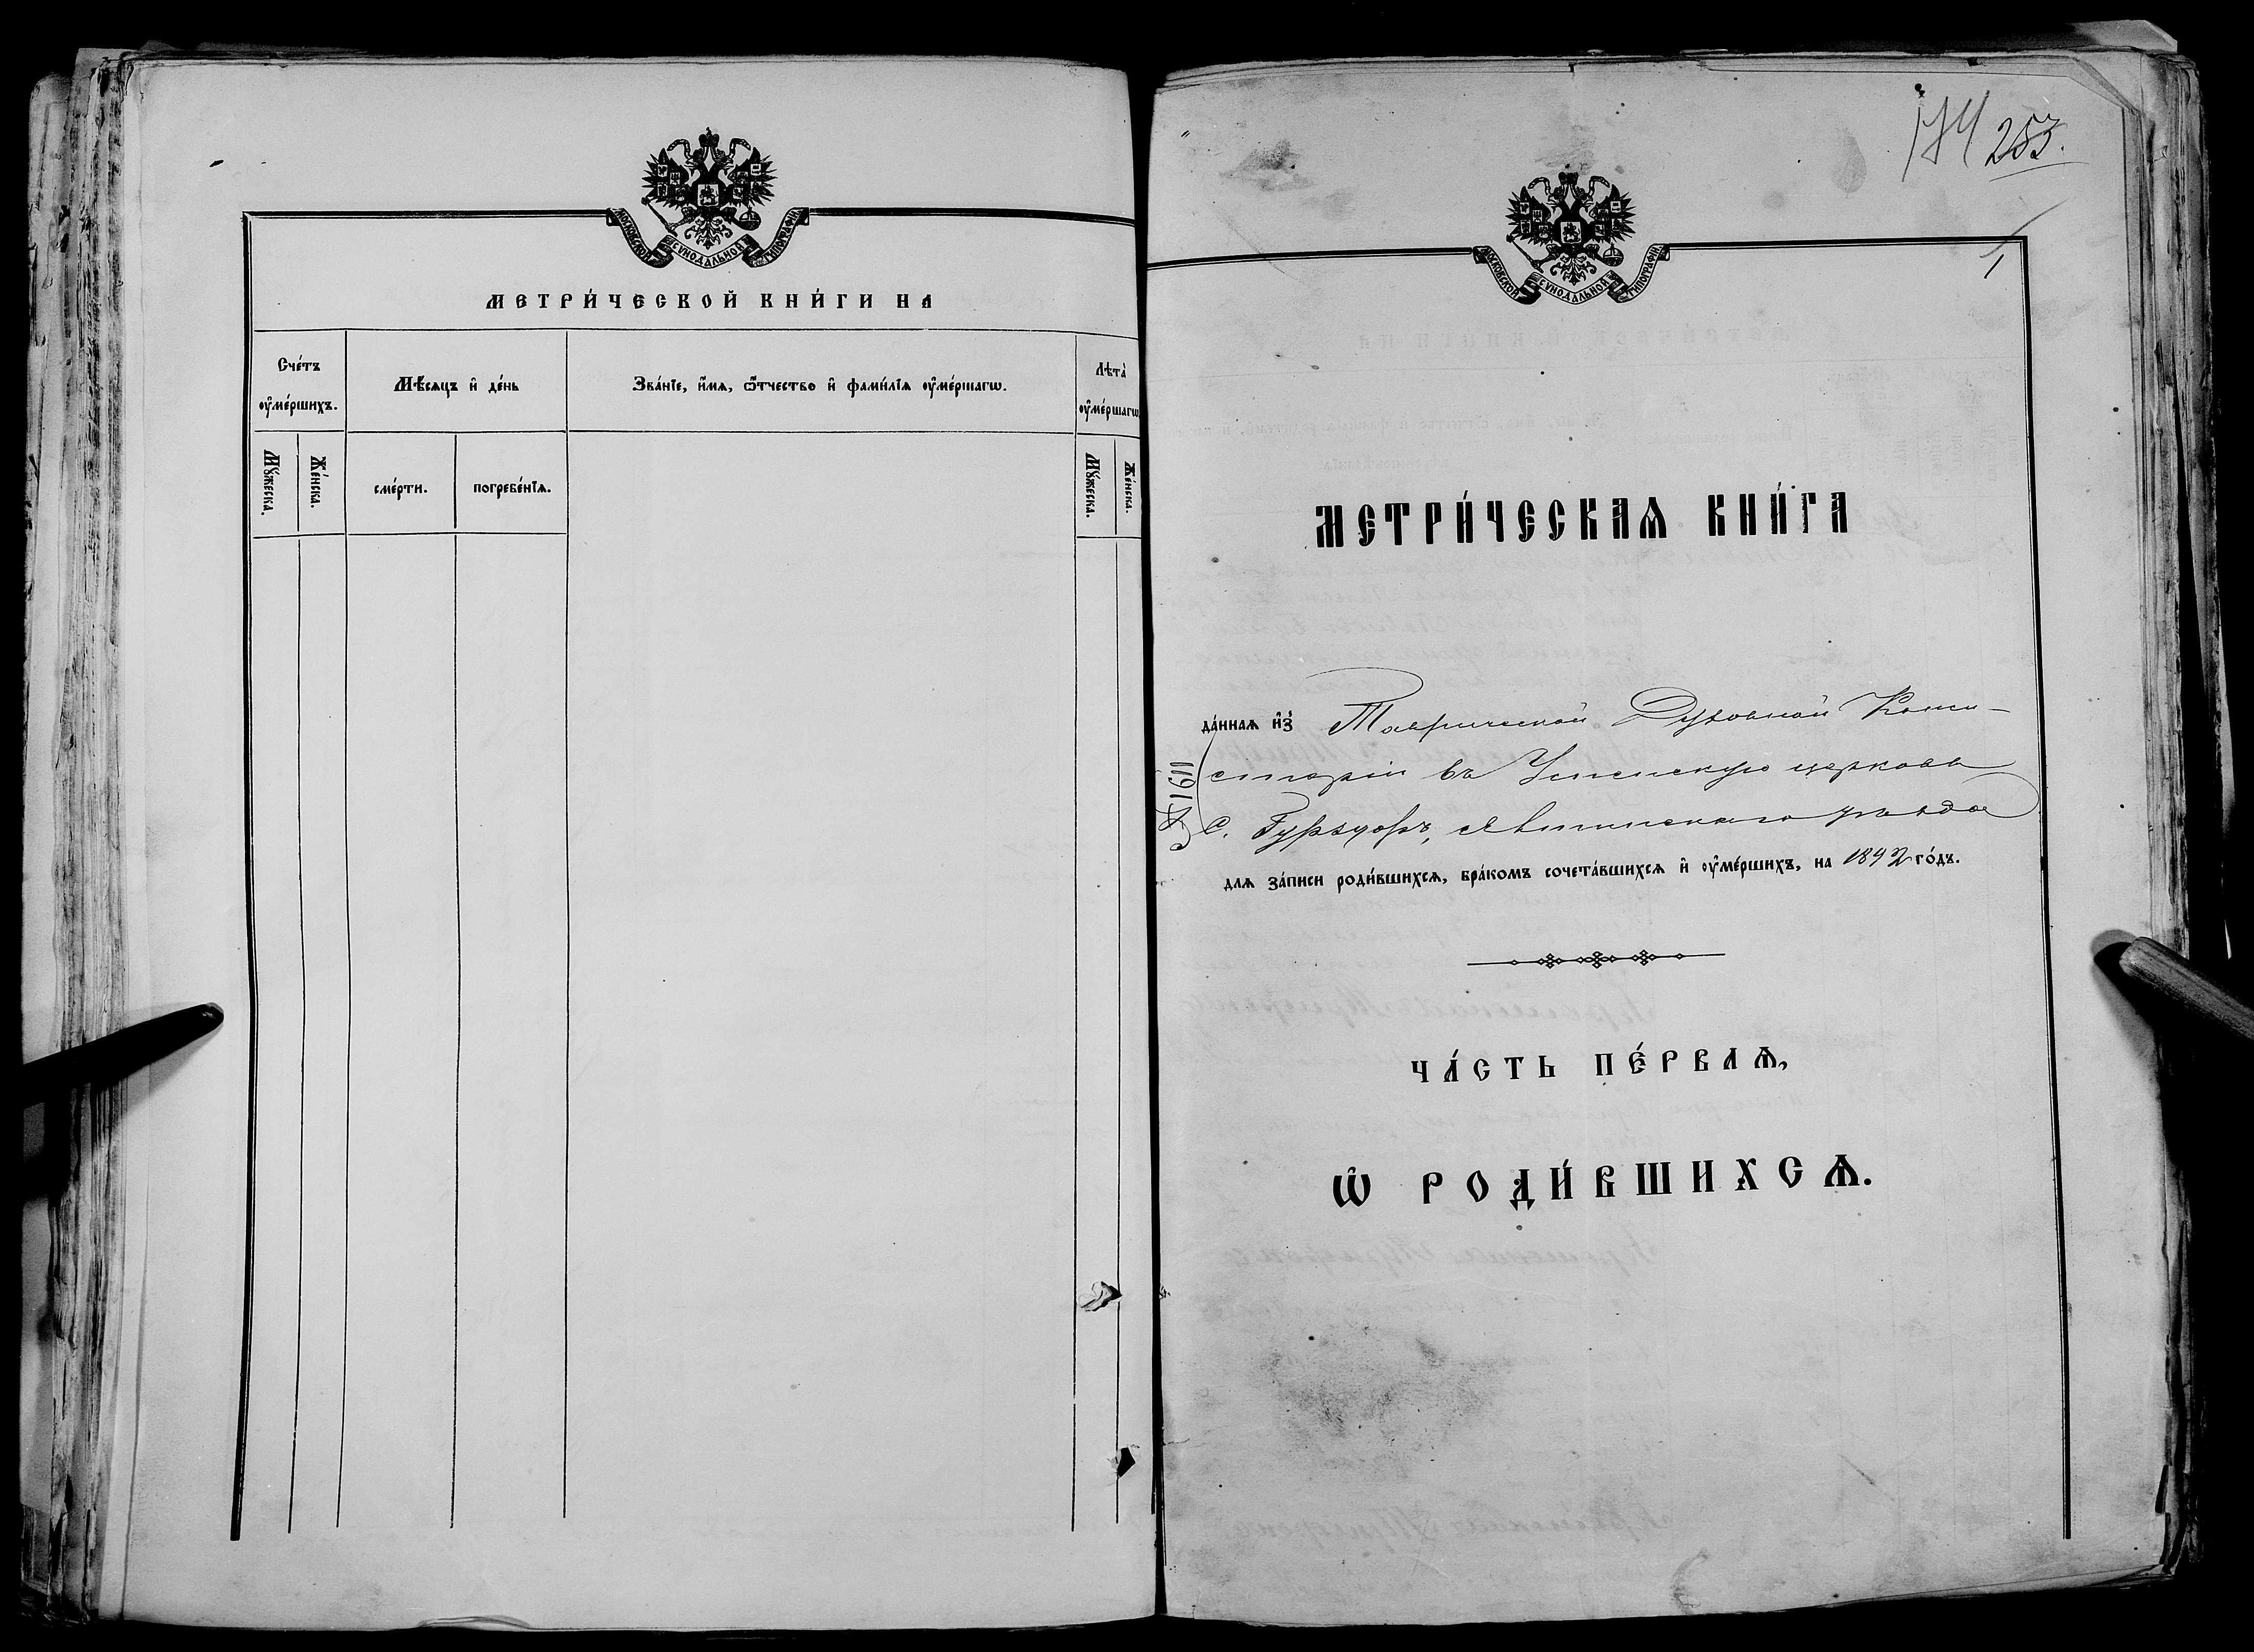 МОСКОВСКОЙ СѴНОДАЛЬНОЙ ТИПОГРАФІИ
МЕТРИ́ЧЕСКОЙ КНИ́ГИ НА
Сче́тъ ᲂу҆ме́ршихъ.
Мѣ́сяцъ и҆ де́нь
Зва́нїе, и҆́мѧ, ѻ҆́тчество и҆ фами́лїѧ ᲂу҆ме́ршагѡ.
Лѣта̀ ᲂу҆ме́ршагѡ
Мꙋ́жеска.
Же́нска.
сме́рти.
погребе́нїѧ.
Мꙋ́жеска.
Же́нска.
174 253.
МОСКОВСКОЙ СѴНОДАЛЬНОЙ ТИПОГРАФІИ
1
МЕТРИ́ЧЕСКАѦ КНИ́ГА
да́ннаѧ и҆з̾ Таврической Духовной Конси-
сторіи въ Успенскую церковь
с. Гурзуфъ, Ялтинскаго уѣзда
№ 1611
длѧ за́писи роди́вшихсѧ, бра́комъ сочета́вшихсѧ и҆ ᲂу҆ме́ршихъ, на 1892 го́дъ.
ЧА́СТЬ ПЕ́РВАѦ,
Ѽ РОДИ́ВШИХСѦ.